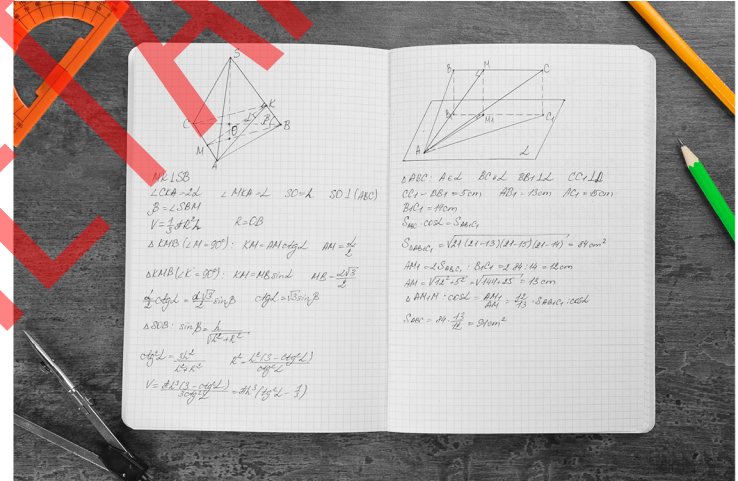 S
K
C
O
B
M
A
MK⊥SB
∠CKA=2α ∠MKA=α SO=h SO⊥(ABC)
β=∠SBM
V=1/3πR²h R=OB
△KMB(∠M=90°): KM=AMctgα AM=a/2
△KMB(∠K=90°): KM=MBsinα MB=a√3/2
a/2 ctgα=a√3/2 sinβ ctgα=√3sinβ
△SOB: sinβ=h/√h²+R²
ctg²α=3h²/h²+R² R²=h²(3-ctg²α)/ctg²α
V=πh³(3-ctg²α)/3ctg²α=πh³(tg²α-1/3)
B M C
B₁ M₁ C₁
A
α
△ABC: A∈α BC∥α BB₁⊥α CC₁⊥α
CC₁=BB₁=5cm AB₁=13cm AC₁=15cm
B₁C₁=14cm
S_ABC·cosα=S_AB₁C₁
S_△AB₁C₁=√21(21-13)(21-15)(21-14)=84cm²
AM₁=2S_AB₁C₁:B₁C₁=2·84:14=12cm
AM=√12²+5²=√144+25=13cm
△AM₁M: cosα=AM₁/AM=12/13·S_AB₁C₁:cosα
S_ABC=84·13/12=91cm²